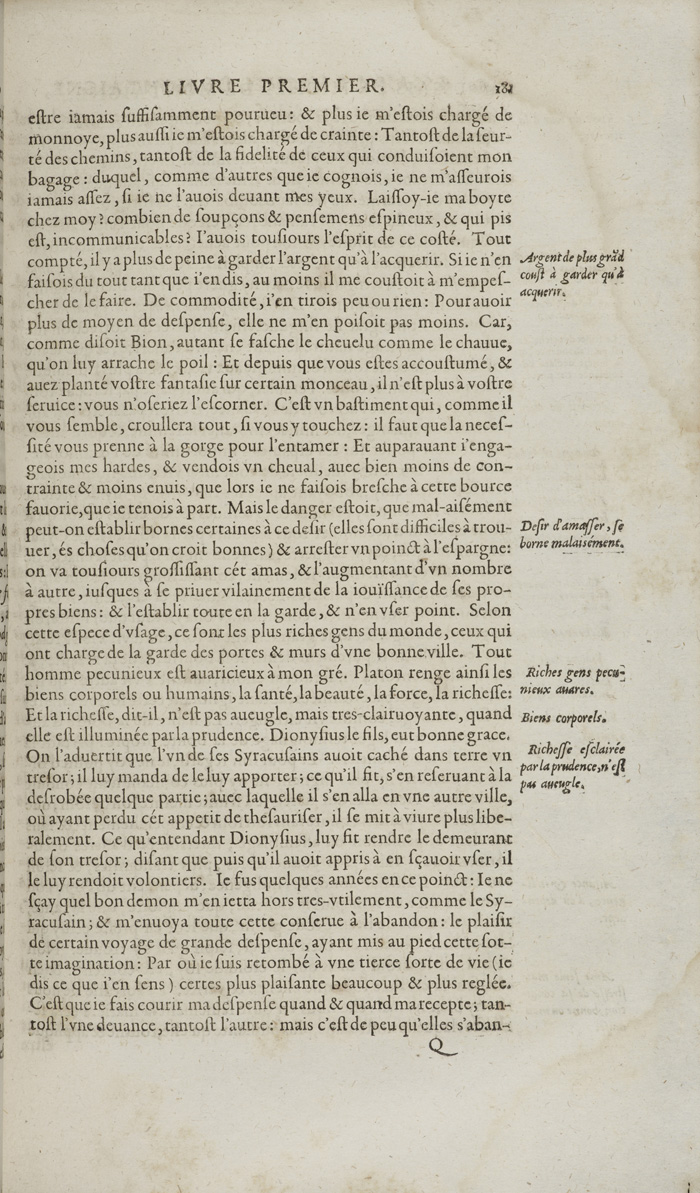 LIVRE PREMIER. 181
eſtre iamais ſuffiſamment pourueu: & plus ie m'eſtois chargé de
monnoye, plus auſſi ie m'eſtois chargé de crainte: Tantoſt de la ſeur-
té des chemins, tantoſt de la fidelité de ceux qui conduiſoient mon
bagage: duquel, comme d'autres que ie cognois, ie ne m'aſſeurois
iamais aſſez, ſi ie ne l'auois deuant mes yeux. Laiſſoy-ie ma boyte
chez moy? combien de ſoupçons & penſemens eſpineux, & qui pis
eſt, incommunicables? I'auois touſiours l'eſprit de ce coſté. Tout
compté, il y a plus de peine à garder l'argent qu'à l'acquerir. Si ie n'en
faiſois du tout tant que i'en dis, au moins il me couſtoit à m'empeſ-
cher de le faire. De commodité, i'en tirois peu ou rien: Pour auoir
plus de moyen de deſpenſe, elle ne m'en poiſoit pas moins. Car,
comme diſoit Bion, autant ſe faſche le cheuelu comme le chauue,
qu'on luy arrache le poil: Et depuis que vous eſtes accouſtumé, &
auez planté voſtre fantaſie ſur certain monceau, il n'eſt plus à voſtre
ſeruice: vous n'oſeriez l'eſcorner. C'eſt vn baſtiment qui, comme il
vous ſemble, croullera tout, ſi vous y touchez: il faut que la neceſ-
ſité vous prenne à la gorge pour l'entamer: Et auparauant i'enga-
geois mes hardes, & vendois vn cheual, auec bien moins de con-
trainte & moins enuis, que lors ie ne faiſois breſche à cette bource
fauorie, que ie tenois à part. Mais le danger eſtoit, que mal-aiſément
peut-on eſtablir bornes certaines à ce deſir (elles ſont difficiles à trou-
uer, és choſes qu'on croit bonnes) & arreſter vn poinct à l'eſpargne:
on va touſiours groſſiſſant cét amas, & l'augmentant d'vn nombre
à autre, iuſques à ſe priuer vilainement de la iouïſſance de ſes pro-
pres biens: & l'eſtablir toute en la garde, & n'en vſer point. Selon
cette eſpece d'vſage, ce ſont les plus riches gens du monde, ceux qui
ont charge de la garde des portes & murs d'vne bonne ville. Tout
homme pecunieux eſt auaricieux à mon gré. Platon renge ainſi les
biens corporels ou humains, la ſanté, la beauté, la force, la richeſſe:
Et la richeſſe, dit-il, n'eſt pas aueugle, mais tres-clairuoyante, quand
elle eſt illuminée par la prudence. Dionyſius le fils, eut bonne grace.
On l'aduertit que l'vn de ſes Syracuſains auoit caché dans terre vn
treſor; il luy manda de le luy apporter; ce qu'il fit, s'en reſeruant à la
deſrobée quelque partie; auec laquelle il s'en alla en vne autre ville,
où ayant perdu cét appetit de theſauriſer, il ſe mit à viure plus libe-
ralement. Ce qu'entendant Dionyſius, luy fit rendre le demeurant
de ſon treſor; diſant que puis qu'il auoit appris à en ſçauoir vſer, il
le luy rendoit volontiers. Ie fus quelques années en ce poinct: Ie ne
ſçay quel bon demon m'en ietta hors tres-vtilement, comme le Sy-
racuſain; & m'enuoya toute cette conſerue à l'abandon: le plaiſir
de certain voyage de grande deſpenſe, ayant mis au pied cette ſot-
te imagination: Par où ie ſuis retombé à vne tierce ſorte de vie (ie
dis ce que i'en ſens) certes plus plaiſante beaucoup & plus reglée.
C'eſt que ie fais courir ma deſpenſe quand & quand ma recepte; tan-
toſt l'vne deuance, tantoſt l'autre: mais c'eſt de peu qu'elles s'aban-
Q
Argent de plus grãd
couſt à garder qu'à
acquerir.
Deſir d'amaſſer, ſe
borne malaisément.
Riches gens pecu-
nieux auares.
Biens corporels.
Richeſſe eſclairée
par la prudence, n'eſt
pas aueugle.